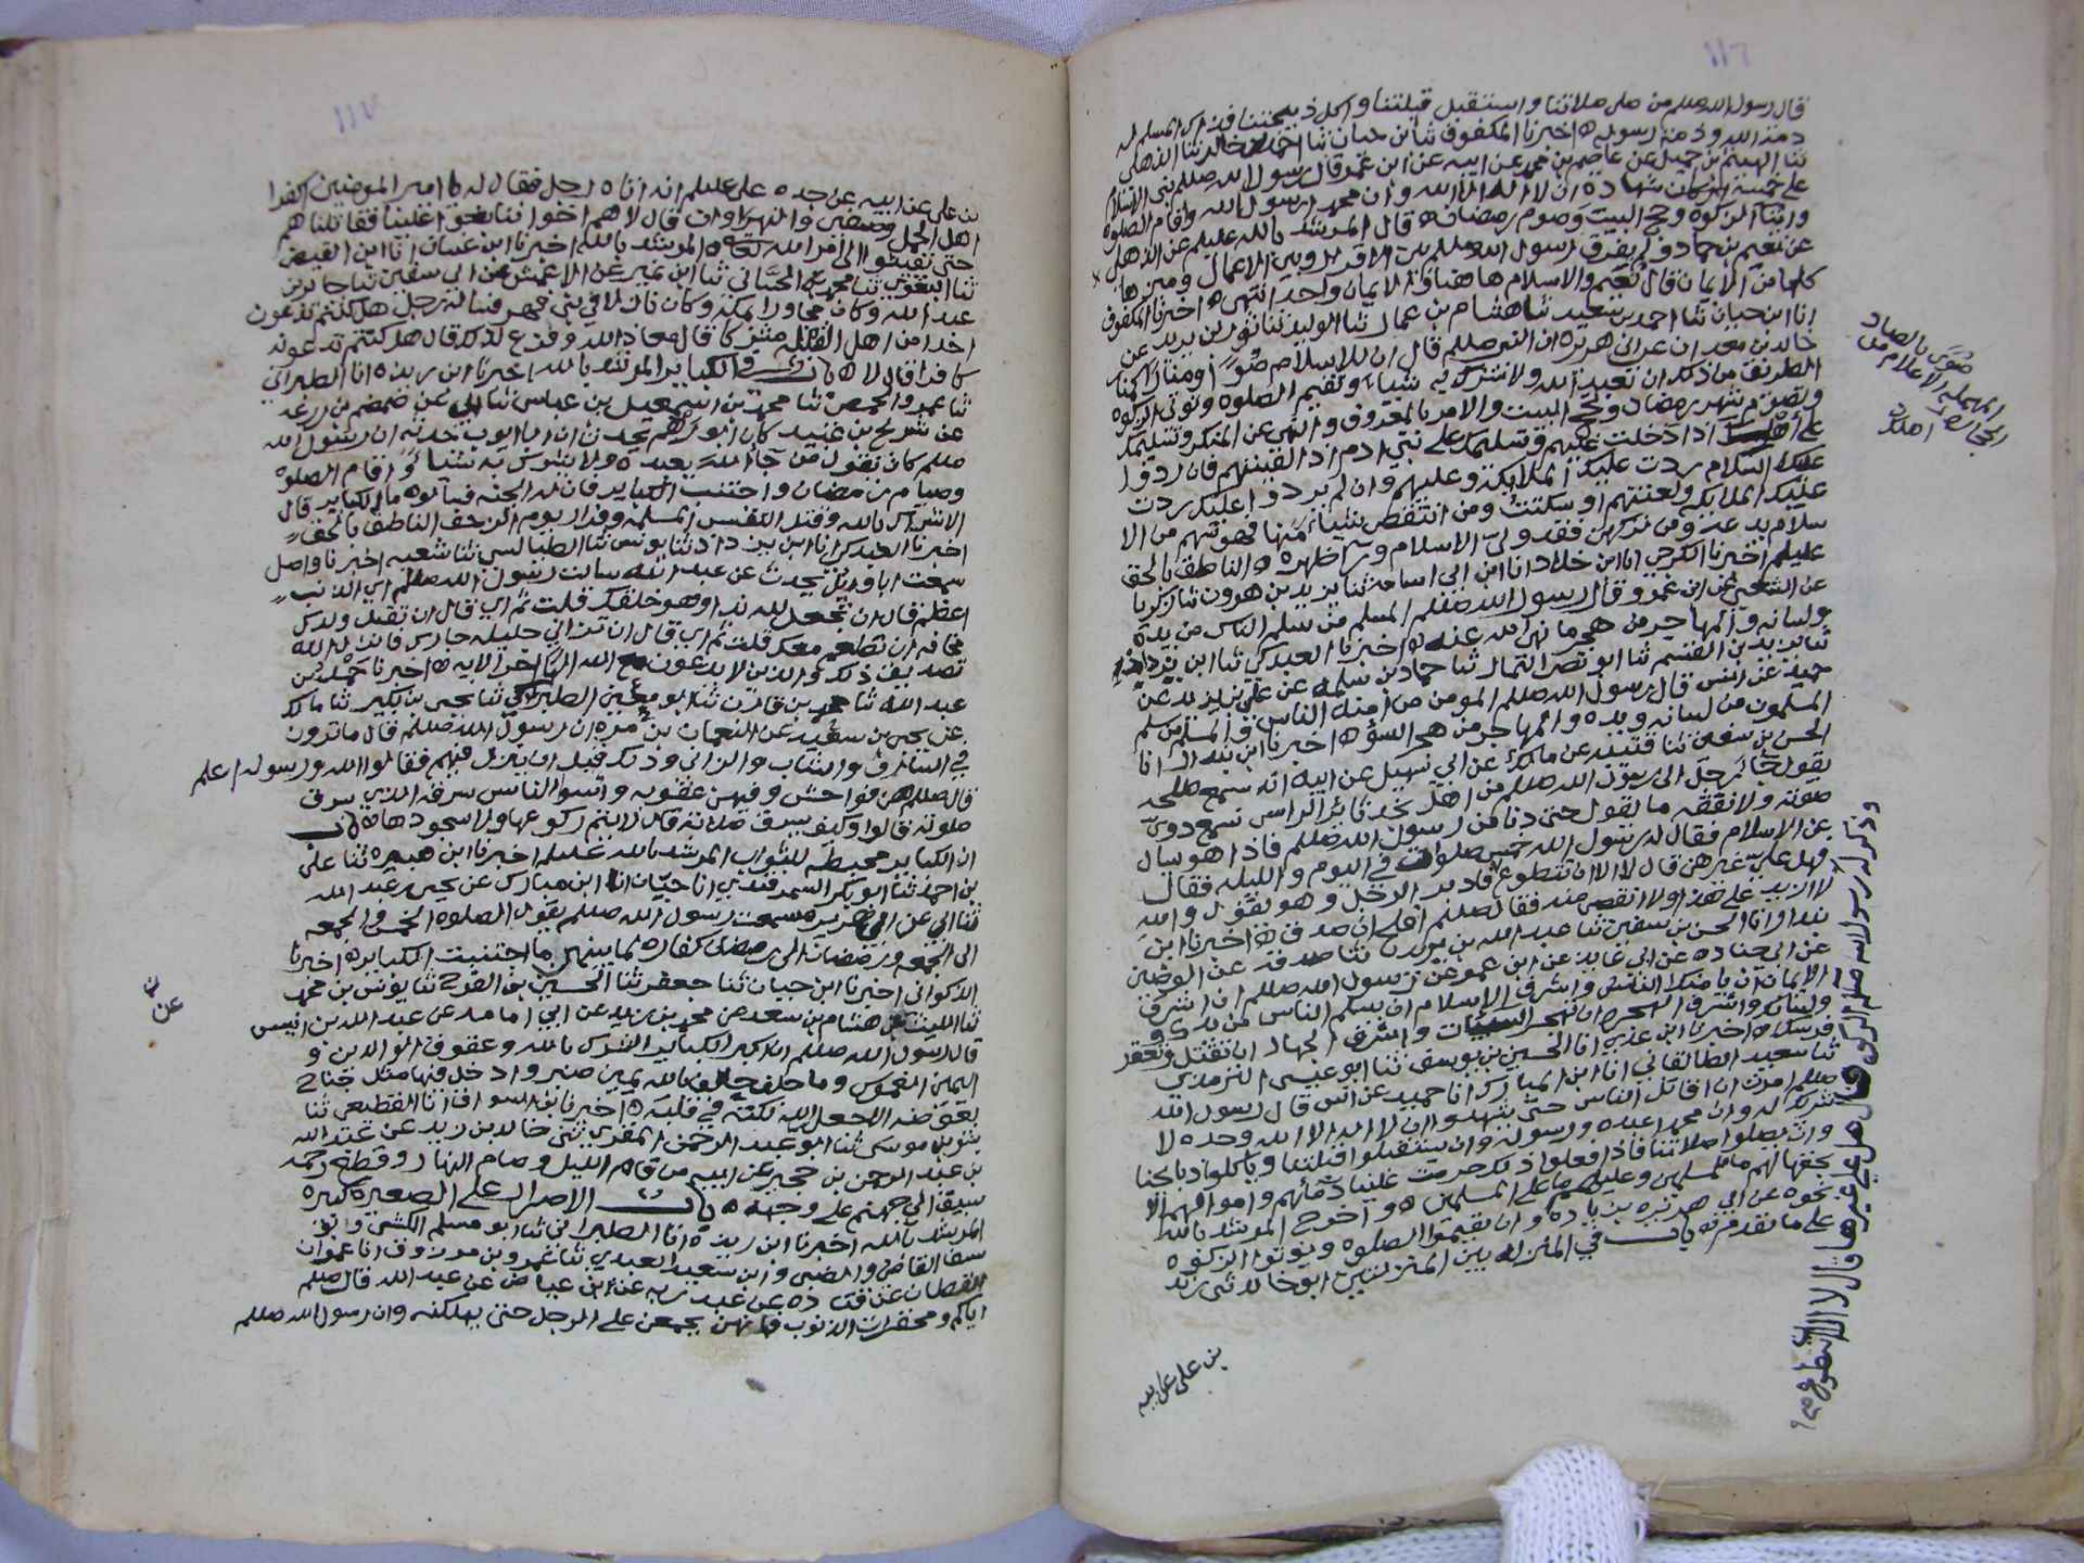 ١١٦
قال رسول الله صللم من صلى صلاتنا واستقبل قبلتنا واكل ذبيحتنا فذاك المسلم له
ذمة الله وذمة رسوله ه اخبرنا المكفوف ثنا ابن حبان ثنا خالد ثنا الذهلي
ثنا الهيثم بن جميل عن عاصم بن محمد عن ابيه عن ابن عمر قال رسول الله صللم بني الاسلام
على خمسة اركان شهادة ان لا اله الا الله وان محمدا رسول الله واقام الصلوة
وايتآ الزكوة وحج البيت وصوم رمضان ه قال المرشد بالله عليلم عن الذهلي
عن نعيم بن حماد لم يفرق رسول الله صللم بين الاقرار وبين الاعمال
كلها من الايمان قال نعيم والاسلام هاهنا والايمان واحد انتهى ه اخبرنا المكفوف
انا ابن حبان ثنا احمد بن سعيد ثنا هشام بن عمار ثنا الوليد ثنا ثور بن يزيد عن
خالد بن معدان عن ابي هريرة ان النبي صللم قال ان للاسلام صُوًى ومنارا كمنار
الطريق من ذلك ان تعبد الله ولا تشرك به شيئا وتقيم الصلوة وتوتي الزكوة
وتصوم شهر رمضان وتحج البيت والامر بالمعروف والنهي عن المنكر وتسليمك
على اهلك اذا دخلت عليهم وتسليمك على بني ادم اذا لقيتهم فان ردوا
عليك السلام ردت عليك الملايكة وعليهم وان لم يردوا عليك ردت
عليك الملايكة ولعنتهم او سكتت ومن انتقص شيئا منها فهو سهم من الا
سلام يدعه ومن تركهن فقد ولى الاسلام ظهره ه الناطق بالحق
عليلم اخبرنا الكرجي انا ابن خلاد انا ابن ابي اسامة ثنا يزيد بن هرون ثنا زكريا
عن الشعبي عن ابن عمرو قال رسول الله صللم المسلم من سلم الناس من يده
ولسانه والمهاجر من هجر ما نهى الله عنه ه اخبرنا العبدكي ثنا ابن يزداذ
ثنا يزيد بن القسم ثنا ابو نصر التمار ثنا حماد بن سلمة عن علي بن زيد عن
حميد عن انس قال رسول الله صللم المومن من امنه الناس والمسلم من سلم
المسلمون من لسانه ويده والمهاجر من هجر السؤ ه اخبرنا ابن بندار انا
الحسن بن سفين ثنا قتيبة عن مالك عن ابي سهيل عن ابيه انه سمع طلحة
يقول جآ رجل الى رسول الله صللم من اهل نجد ثاير الراس نسمع دوي
صوته ولا نفقه ما يقول حتى دنا من رسول الله صللم فاذا هو يسال
عن الاسلام فقال له رسول الله خمس صلوات في اليوم والليلة فقال
فهل علي غيرهن قال لا الا ان تتطوع فادبر الرجل وهو يقول والله
لا ازيد على هذا ولا انقص منه فقال صللم افلح ان صدق ه اخبرنا ابن
بندار انا الحسن بن سفين ثنا عبد الله بن ثنا صدقة عن الوضين
عن ابي جناده عن ابي عن ابن عمر عن رسول الله صللم ان اشرف
الايمان ان يامنك الناس واشرف الاسلام ان يسلم الناس من يدك و
ولسانك واشرف الهجرة ان تهجر السيئات واشرف الجهاد ان تقتل وتعقر
فرسك ه اخبرنا ابن غزيه انا الحسين بن يوسف ثنا ابو عيسى الترمذي
ثنا سعيد الطالقاني انا ابن المبارك انا حميد عن انس قال رسول الله
صللم امرت ان اقاتل الناس حتى يشهدوا ان لا اله الا الله وحده لا
شريك له وان محمدا عبده ورسوله وان يستقبلوا قبلتنا وياكلوا ذبايحنا
وان يصلوا صلاتنا فاذا فعلوا ذلك حرمت علينا دمآئهم واموالهم الا
بحقها لهم ما للمسلمين وعليهم ما على المسلمين ه واخرج المرشد بالله
نحوه عن ابي هريرة بزيادة وان يقيموا الصلوة ويوتوا الزكوة
على ما تقدم ه باب في المنزلة بين المنزلتين ابو خالد ثني زيد
بن علي عن ابيه
صُوًى بالصاد
المهملة الاعلام من
الحجارة
وذكر له رسول الله صللم الزكوة قال هل علي غيرها قال لا الا ان تطوع
١١٧
بن علي عن ابيه عن جده علي عليلم انه اتاه رجل فقال له يا امير المومنين اكفرا
اهل الجمل وصفين والنهروان قال لا هم اخواننا بغوا علينا فقاتلناهم
حتى يفيئوا الى امر الله ه المرشد بالله اخبرنا ابن غسان انا ابن القيصر
ثنا البغوي ثنا محمد الحماني ثنا ابن نمير عن الاعمش عن ابي سفين ثنا جابر بن
عبد الله وكان مجاورا بمكة وكان نازلا في بني فهر فسأله رجل هل كنتم تدعون
احدا من اهل القبلة مشركا قال معاذ الله وفزع لذلك قال هل كنتم تدعونه
كافرا قال لا ه باب في الكباير المرشد بالله اخبرنا ابن ريذه انا الطبراني
ثنا عمرو الحمصي ثنا محمد بن اسمعيل بن عياش ثنا ابي عن ضمضم بن زرعه
عن شريح بن عبيد كان ابو رهم يحدث ان ابا ايوب حدثه ان رسول الله
صللم كان يقول من جآ الله يعبده ولا يشرك به شيئا واقام الصلوة
وصيام رمضان واجتنب الكباير فان له الجنة فسألوه ما الكباير قال
الاشراك بالله وقتل النفس المسلمة وفرار يوم الزحف الناطق بالحق
اخبرنا العبدكي انا ابن يزداذ ثنا يونس ثنا الطيالسي ثنا شعبه اخبرنا واصل
سمعت ابا وائل يحدث عن عبد الله سالت رسول الله صللم اي الذنب
اعظم قال ان تجعل لله ندا وهو خلقك قلت ثم اي قال ان تقتل ولدك
مخافة ان يطعم معك قلت ثم اي قال ان تزاني حليلة جارك فانزل الله
تصديق ذلك والذين لا يدعون مع الله الها اخر الاية ه اخبرنا حمد بن
عبد الله ثنا محمد بن قارن ثنا ابو معين الطبراني ثنا يحيى بن بكير ثنا مالك
عن يحيى بن سعيد عن النعمان بن مره ان رسول الله صللم قال ما ترون
في السارق والشارب والزاني وذلك قبل ان ينزل فيهم فقالوا الله ورسوله اعلم
قال صللم هن فواحش وفيهن عقوبه واسوا الناس سرقه الذي يسرق
صلوته قالوا وكيف يسرق صلاته قال لا يتم ركوعها ولا سجودها ه باب
ان الكباير محبطة للثواب المرشد بالله عليلم اخبرنا ابن هبيره ثنا علي
بن احمد ثنا ابو بكر السمرقندي انا حبان انا ابن مبارك عن يحيى بن عبد الله
ثنا ابي عن ابي هريره سمعت رسول الله صللم يقول الصلوة الخمس والجمعه
الى الجمعه ورمضان الى رمضان كفارة لما بينهن ما اجتنبت الكباير ه اخبرنا
الذكواني اخبرنا ابن حبان ثنا جعفر ثنا الحسين بن الفرج ثنا يونس بن محمد
ثنا الليث عن هشام بن سعد عن محمد بن زيد عن ابي امامه عن عبد الله بن انيس
قال رسول الله صللم ان اكبر الكباير الشرك بالله وعقوق الوالدين و
اليمين الغموس وما حلف حالف بالله يمين صبر وادخل فيها مثل جناح
بعوضه الا جعل الله نكتة في قلبه ه اخبرنا ابن السواق انا القطيعي ثنا
بشر بن موسى ثنا ابو عبد الرحمن المقري ثني خالد بن زيد عن عبد الله
بن عبد الرحمن بن حجير عن ابيه من قام الليل وصام النهار وقطع رحمه
سيق الى جهنم على وجهه ه باب الاصرار على الصغيرة كبيرة
المرشد بالله اخبرنا ابن ريذه انا الطبراني ثنا ابو مسلم الكشي
القاضي والضبي وابن سعيد العبدي ثنا عمرو بن مرزوق انا عمران
القطان عن قتاده عن عبد ربه عن ابن عياض عن عبد الله قال صللم
اياكم ومحقرات الذنوب فانهن يجمعن على الرجل حتى يهلكنه وان رسول الله صللم
عن